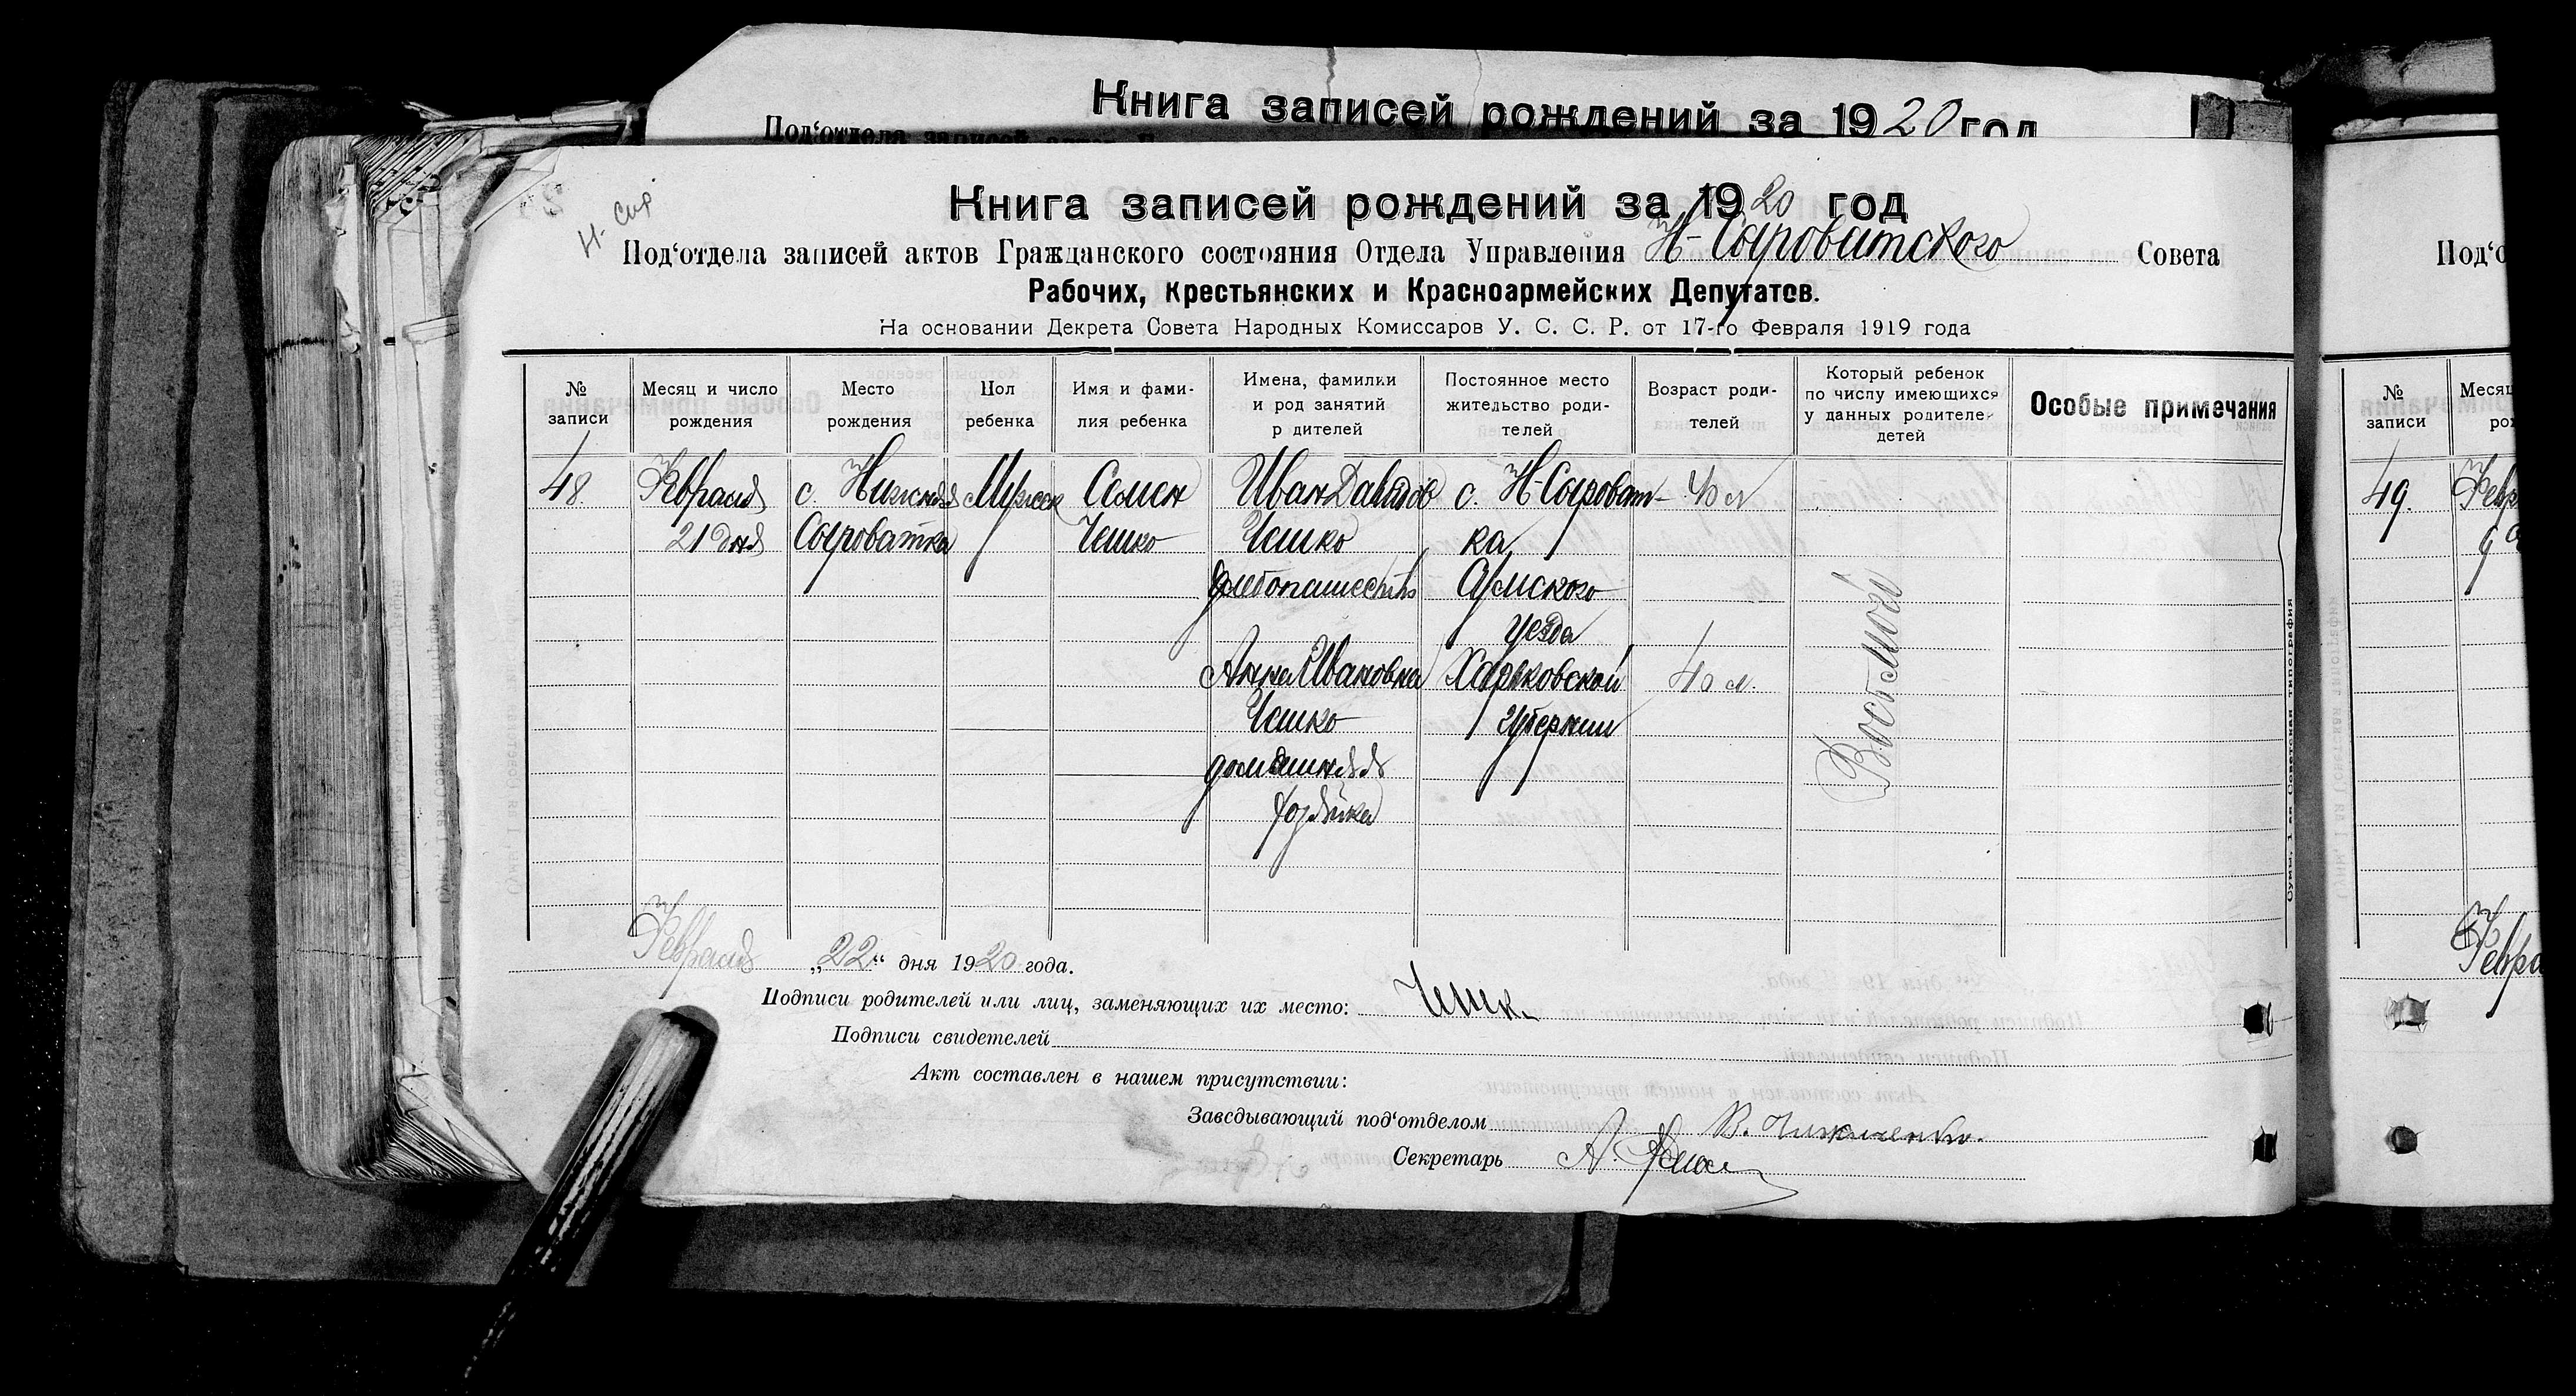 Книга записей рождений за 1920 год
Под‘отдела записей
Н-Сыр
Книга записей рождений за 1920 год
Под‘отдела записей актов Гражданского состояния Отдела Управления Н-Сыроватского Совета
Рабочих, Крестьянских и Красноармейских Депутатов.
На основании Декрета Совета Народных Комиссаров У. С. С. Р. от 17-го Февраля 1919 года
№ записи
Месяц и число рождения
Место рождения
Пол ребенка
Имя и фами-
лия ребенка
Имена, фамилии
и род занятий
р дителей
Постоянное место
жительство роди-
телей
Возраст роди-
телей
Который ребенок
по числу имеющихся
у данных родителей
детей
Особые примечания
48.
Февраля
21 дня
с. Нижняя
Сыроватка
Мужск
Семен
Чешко
Иван Давидов
Чешко
хлебопашество
Анна Ивановна
Чешко
домашняя
хозяйка
с. Н-Сыроват-
ка
Сумского
уезда
Харьковской
губернии
40 л
40 л.
Восьмой
Февраля „22“ дня 1920 года.
Подписи родителей или лиц, заменяющих их место: Чешк
Подписи свидетелей
Акт составлен в нашем присутствии:
Заведывающий под‘отделом
Секретарь А.
Сумы, 1-ая Советская типография
Под‘о
№ записи
Месяц
рож
49.
Февр
9
Февра